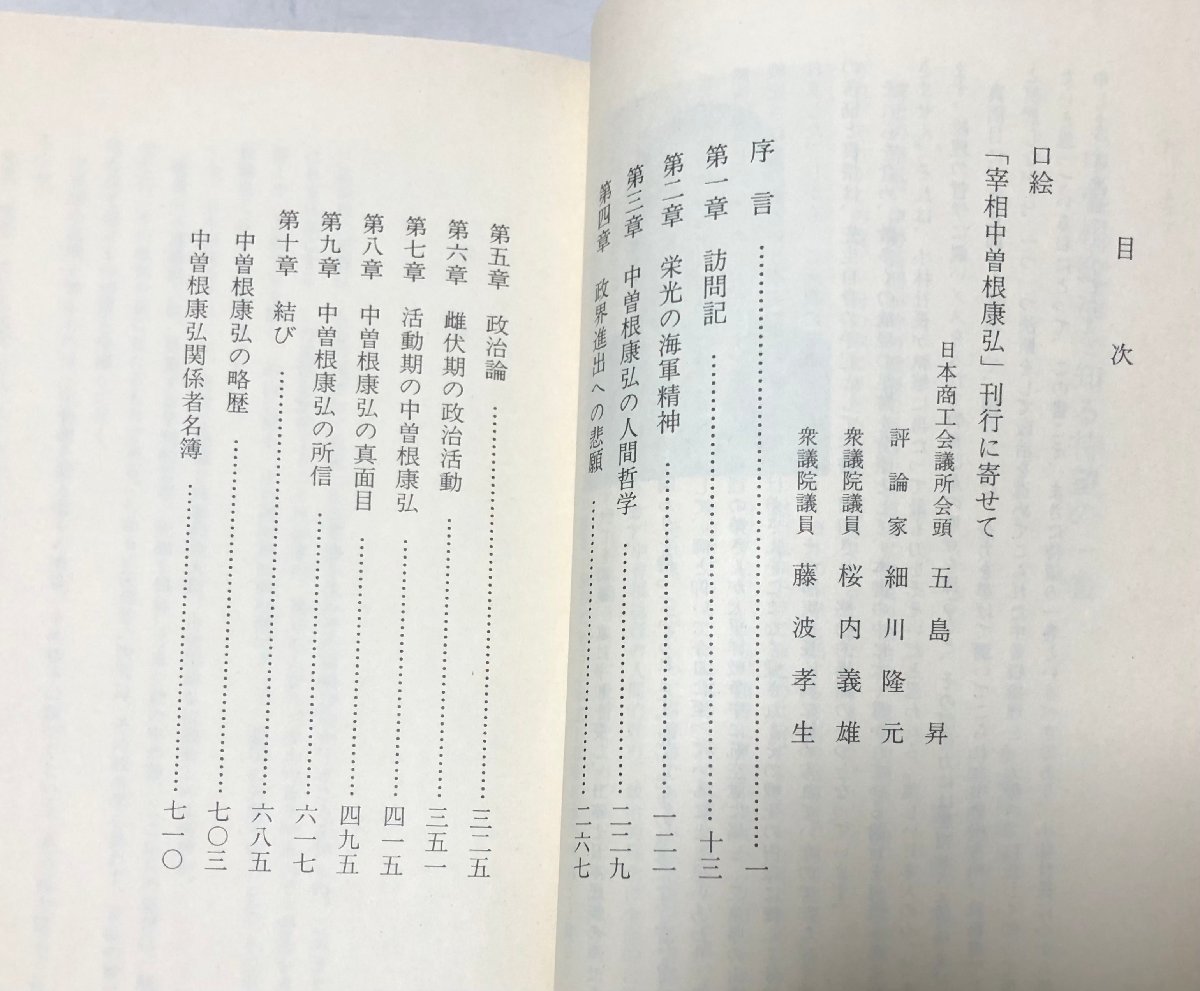 目次
口絵
「宰相中曽根康弘」刊行に寄せて
日本商工会議所会頭 五島 昇
評論家 細川隆元
衆議院議員 桜内義雄
衆議院議員 藤波孝生
序言……一
第一章 訪問記……十三
第二章 栄光の海軍精神……一二一
第三章 中曽根康弘の人間哲学……二二九
第四章 政界進出への悲願……二六七
第五章 政治論……三二五
第六章 雌伏期の政治活動……三五一
第七章 活動期の中曽根康弘……四一五
第八章 中曽根康弘の真面目……四九五
第九章 中曽根康弘の所信……六一七
第十章 結び……六八五
中曽根康弘の略歴……七〇三
中曽根康弘関係者名簿……七一〇